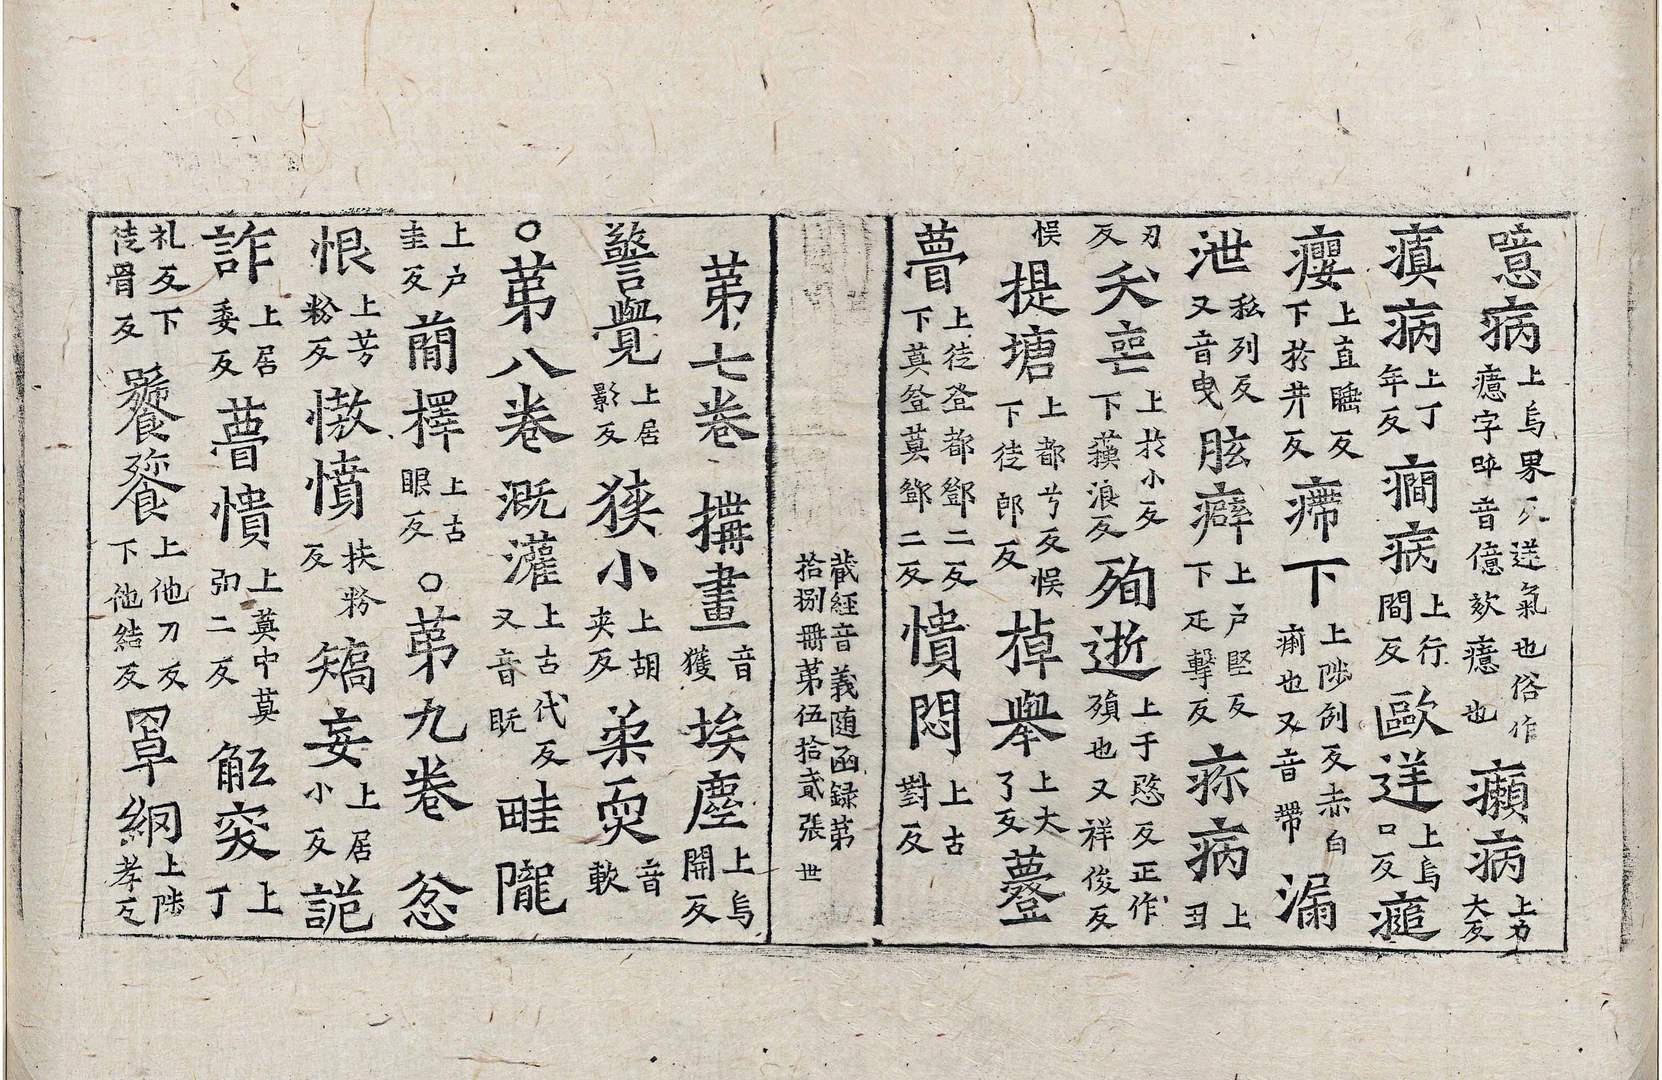 噫病上烏界反送氣也俗作癔字㖒音億欬癔也癩病上力大反
瘨病上丁年反癇病上行間反歐逆上烏口反瘧
瘿上直睡反下於井反㿃下上陟例反赤白痢也又音帶漏
泄私列反又音曳胘癖上户堅反下疋擊反疢病上丑
刃反夭喪上於小反下蘓浪反殉逝上于愍反正作殞也又祥俊反
悮提塘上都兮反悮下徒郎反掉舉上大了反䔲
瞢上徒登都鄧二反下莫登莫鄧二反憒悶上古對反
藏經音義随函録第拾捌冊第伍拾貳張 世
第七卷 㨷畫音獲埃塵上烏開反
警覺上居影反狹小上胡夹反柔耎音軟
○第八卷溉灌上古代反又音既畦隴
上户圭反蕳擇上古眼反○第九卷 忿
恨上芳粉反憿憤扶粉反矯妄上居小反詭
詐上居委反瞢憒上莫中莫弘二反觝突上丁
礼反下徒骨反饕餮上他刀反下他結反罩網上陟孝反